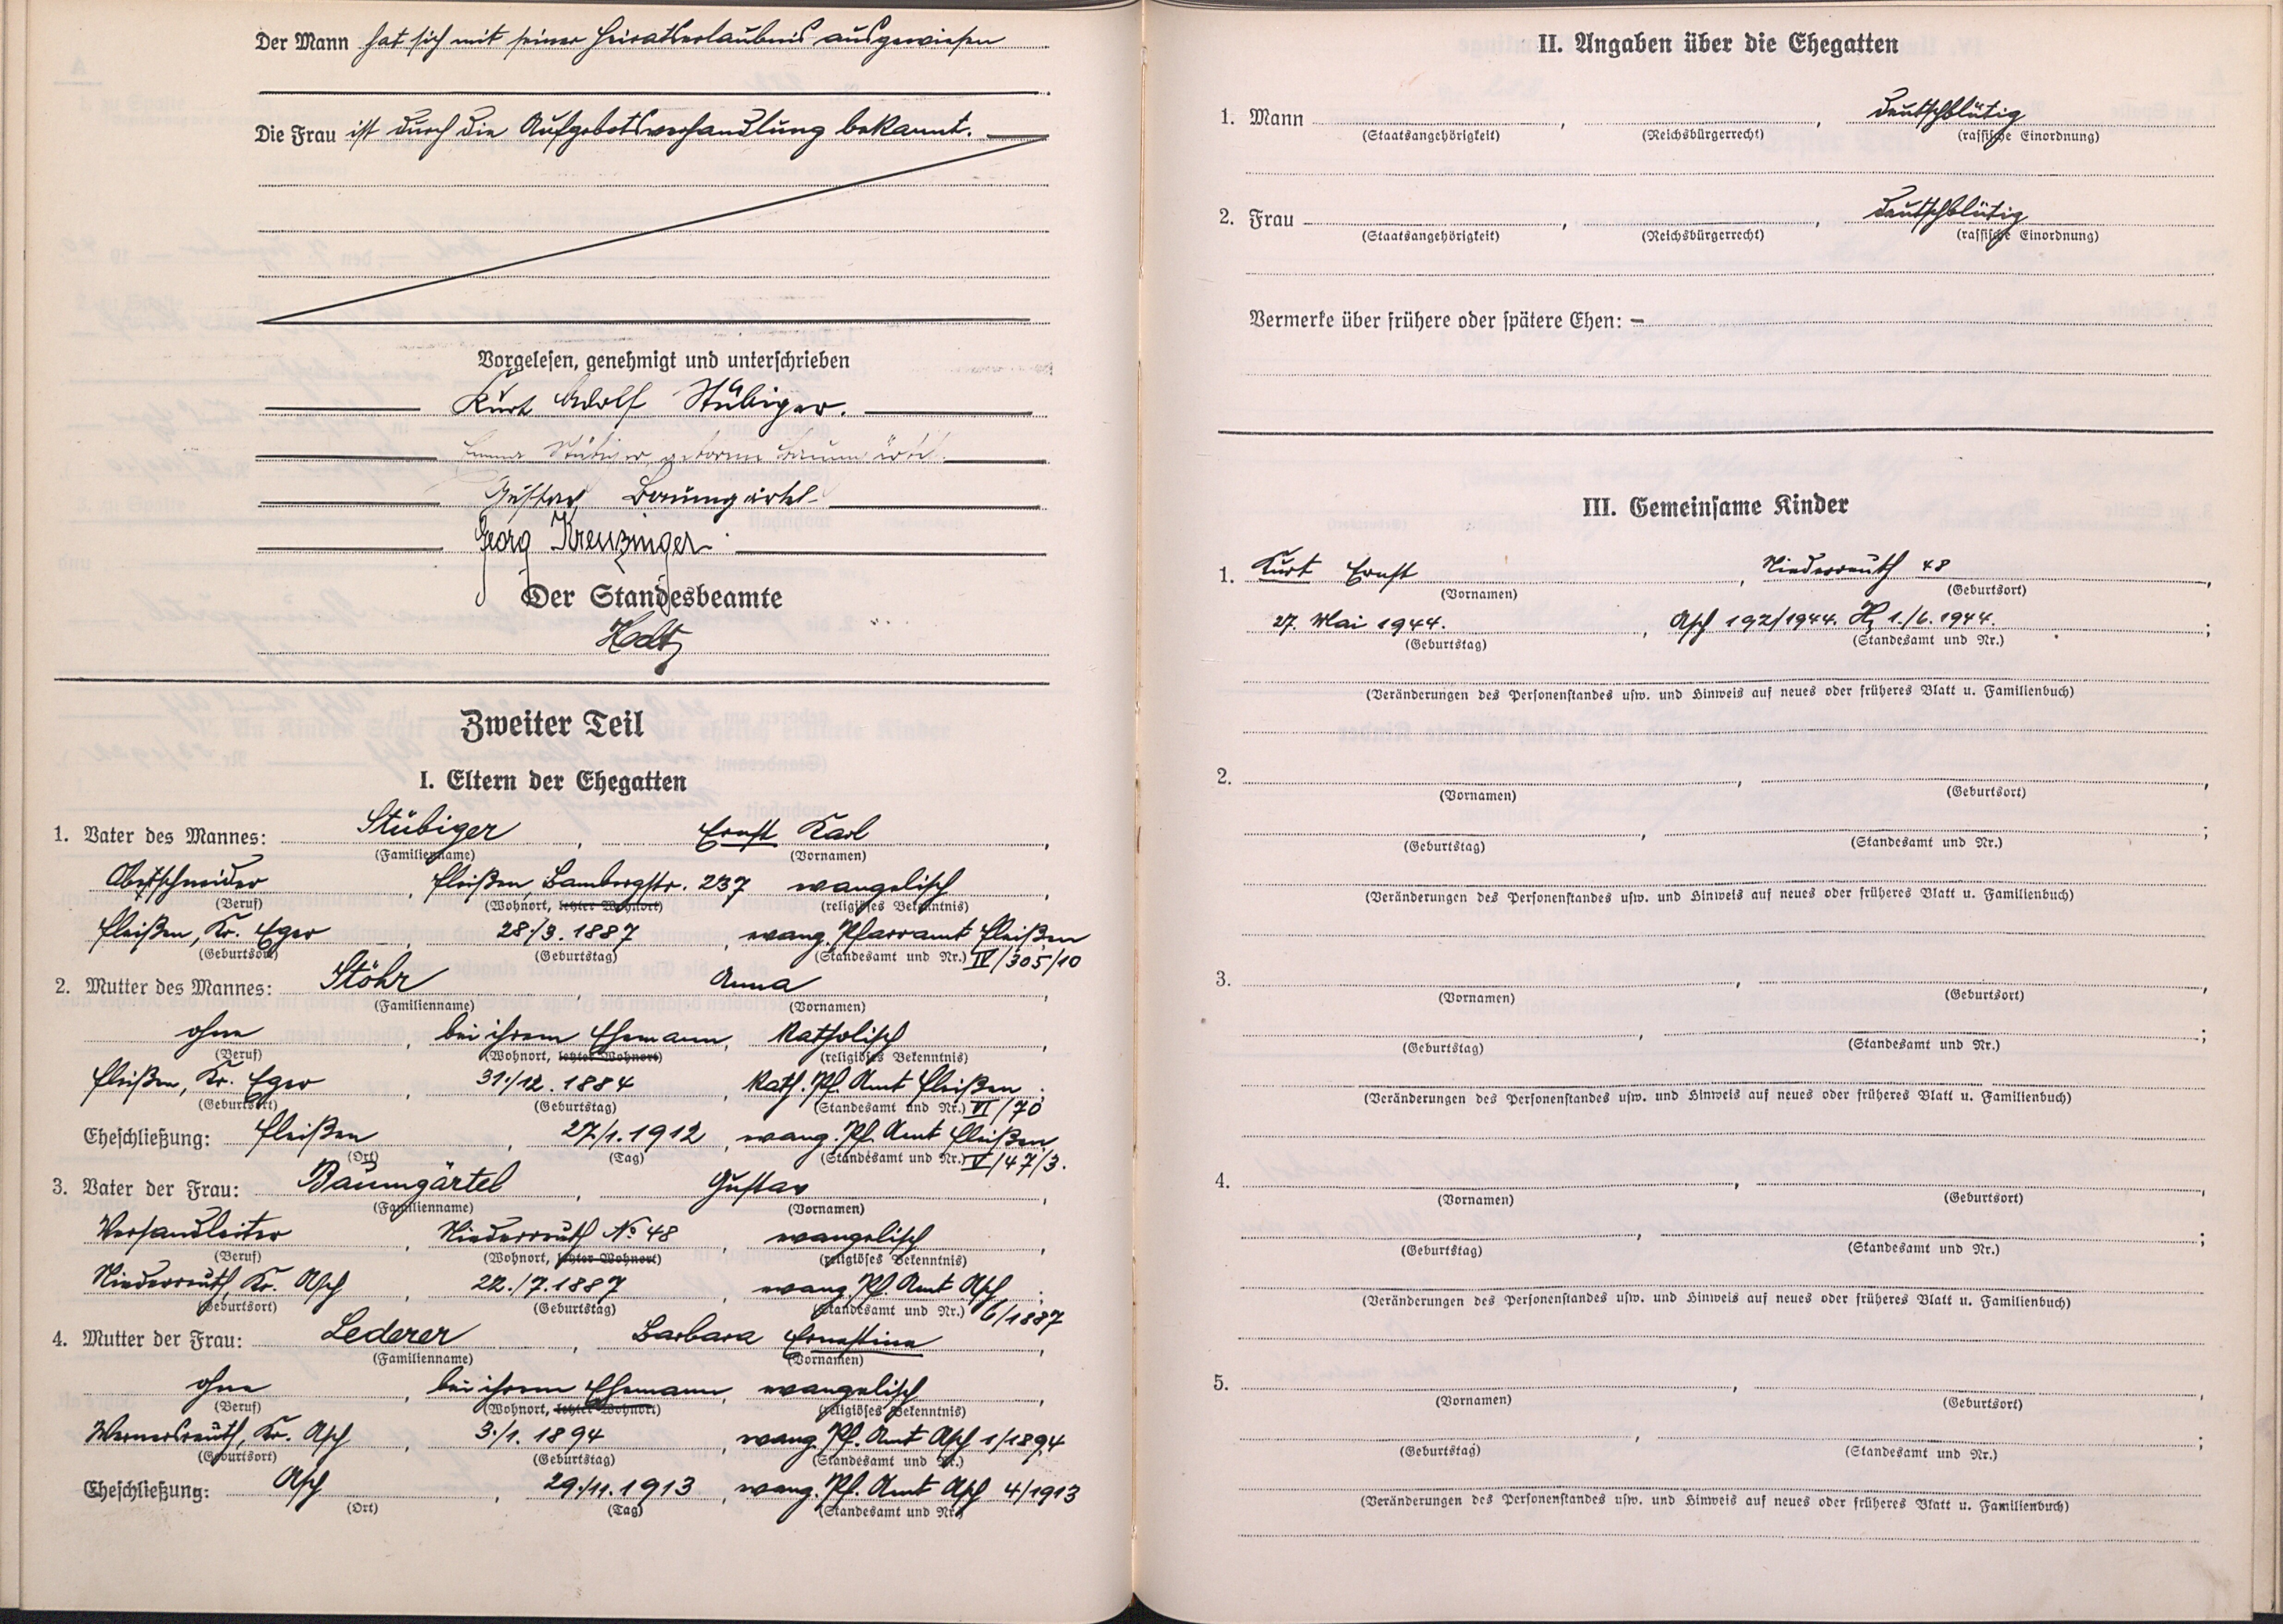 Der Mann hat sich mit seiner Heiratserlaubnis ausgewiesen
Die Frau ist durch die Aufgebotsverhandlung bekannt.
Vorgelesen, genehmigt und unterschrieben
Kurt Adolf Stübiger.
Stübiger geborene
Gustav Baumgärtel
Georg Kreuzinger
Der Standesbeamte
Zweiter Teil
I. Eltern der Ehegatten
1. Vater des Mannes: Stübiger, Ernst Karl,
(Familienname) (Vornamen)
Obstschneider, Fleißen, Bambergstr. 237 evangelisch,
(Beruf) (Wohnort, letzter Wohnort) (religiöses Bekenntnis)
Fleißen, Kr. Eger, 28./3. 1887, evang. Pfarramt Fleißen
(Geburtsort) (Geburtstag) (Standesamt und Nr.) IV/305/10
2. Mutter des Mannes: Stöhr, Anna,
(Familienname) (Vornamen)
ohne, bei ihrem Ehemann, katholisch,
(Beruf) (Wohnort, letzter Wohnort) (religiöses Bekenntnis)
Fleißen, Kr. Eger, 31./12. 1884, Kath. Pf. Amt Fleißen;
(Geburtsort) (Geburtstag) (Standesamt und Nr.) VI/70
Eheschließung: Fleißen, 27./1. 1912, evang. Pf. Amt Fleißen
(Ort) (Tag) (Standesamt und Nr.) V/47/3.
3. Vater der Frau: Baumgärtel, Gustav,
(Familienname) (Vornamen)
Versandleiter, Niederreuth No 48, evangelisch,
(Beruf) (Wohnort, letzter Wohnort) (religiöses Bekenntnis)
Niederreuth, Kr. Asch, 22./7. 1887, evang. Pf. Amt Asch;
(Geburtsort) (Geburtstag) (Standesamt und Nr.) 6/1887
4. Mutter der Frau: Lederer, Barbara Ernestine,
(Familienname) (Vornamen)
ohne, bei ihrem Ehemann, evangelisch,
(Beruf) (Wohnort, letzter Wohnort) (religiöses Bekenntnis)
Wernersreuth, Kr. Asch, 3./1. 1894, evang. Pf. Amt Asch 1/1894
(Geburtsort) (Geburtstag) (Standesamt und Nr.)
Eheschließung: Asch, 29./11. 1913, evang. Pf. Amt Asch 4/1913
(Ort) (Tag) (Standesamt und Nr.)
II. Angaben über die Ehegatten
1. Mann , , deutschblütig
(Staatsangehörigkeit) (Reichsbürgerrecht) (rassische Einordnung)
2. Frau , , deutschblütig
(Staatsangehörigkeit) (Reichsbürgerrecht) (rassische Einordnung)
Vermerke über frühere oder spätere Ehen: –
III. Gemeinsame Kinder
1. Kurt Ernst, Niederreuth 48,
(Vornamen) (Geburtsort)
27. Mai 1944., Asch 192/1944. 1./6. 1944.;
(Geburtstag) (Standesamt und Nr.)
(Veränderungen des Personenstandes usw. und Hinweis auf neues oder früheres Blatt u. Familienbuch)
2. , ,
(Vornamen) (Geburtsort)
, ;
(Geburtstag) (Standesamt und Nr.)
(Veränderungen des Personenstandes usw. und Hinweis auf neues oder früheres Blatt u. Familienbuch)
3. , ,
(Vornamen) (Geburtsort)
, ;
(Geburtstag) (Standesamt und Nr.)
(Veränderungen des Personenstandes usw. und Hinweis auf neues oder früheres Blatt u. Familienbuch)
4. , ,
(Vornamen) (Geburtsort)
, ;
(Geburtstag) (Standesamt und Nr.)
(Veränderungen des Personenstandes usw. und Hinweis auf neues oder früheres Blatt u. Familienbuch)
5. , ,
(Vornamen) (Geburtsort)
, ;
(Geburtstag) (Standesamt und Nr.)
(Veränderungen des Personenstandes usw. und Hinweis auf neues oder früheres Blatt u. Familienbuch)